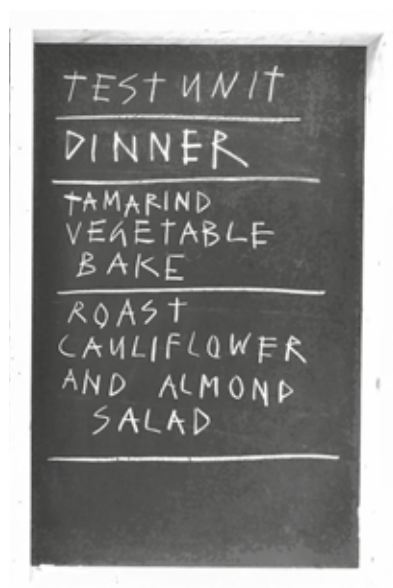 TEST UNIT
DINNER
TAMARIND
VEGETABLE
BAKE
ROAST
CAULIFLOWER
AND ALMOND
SALAD